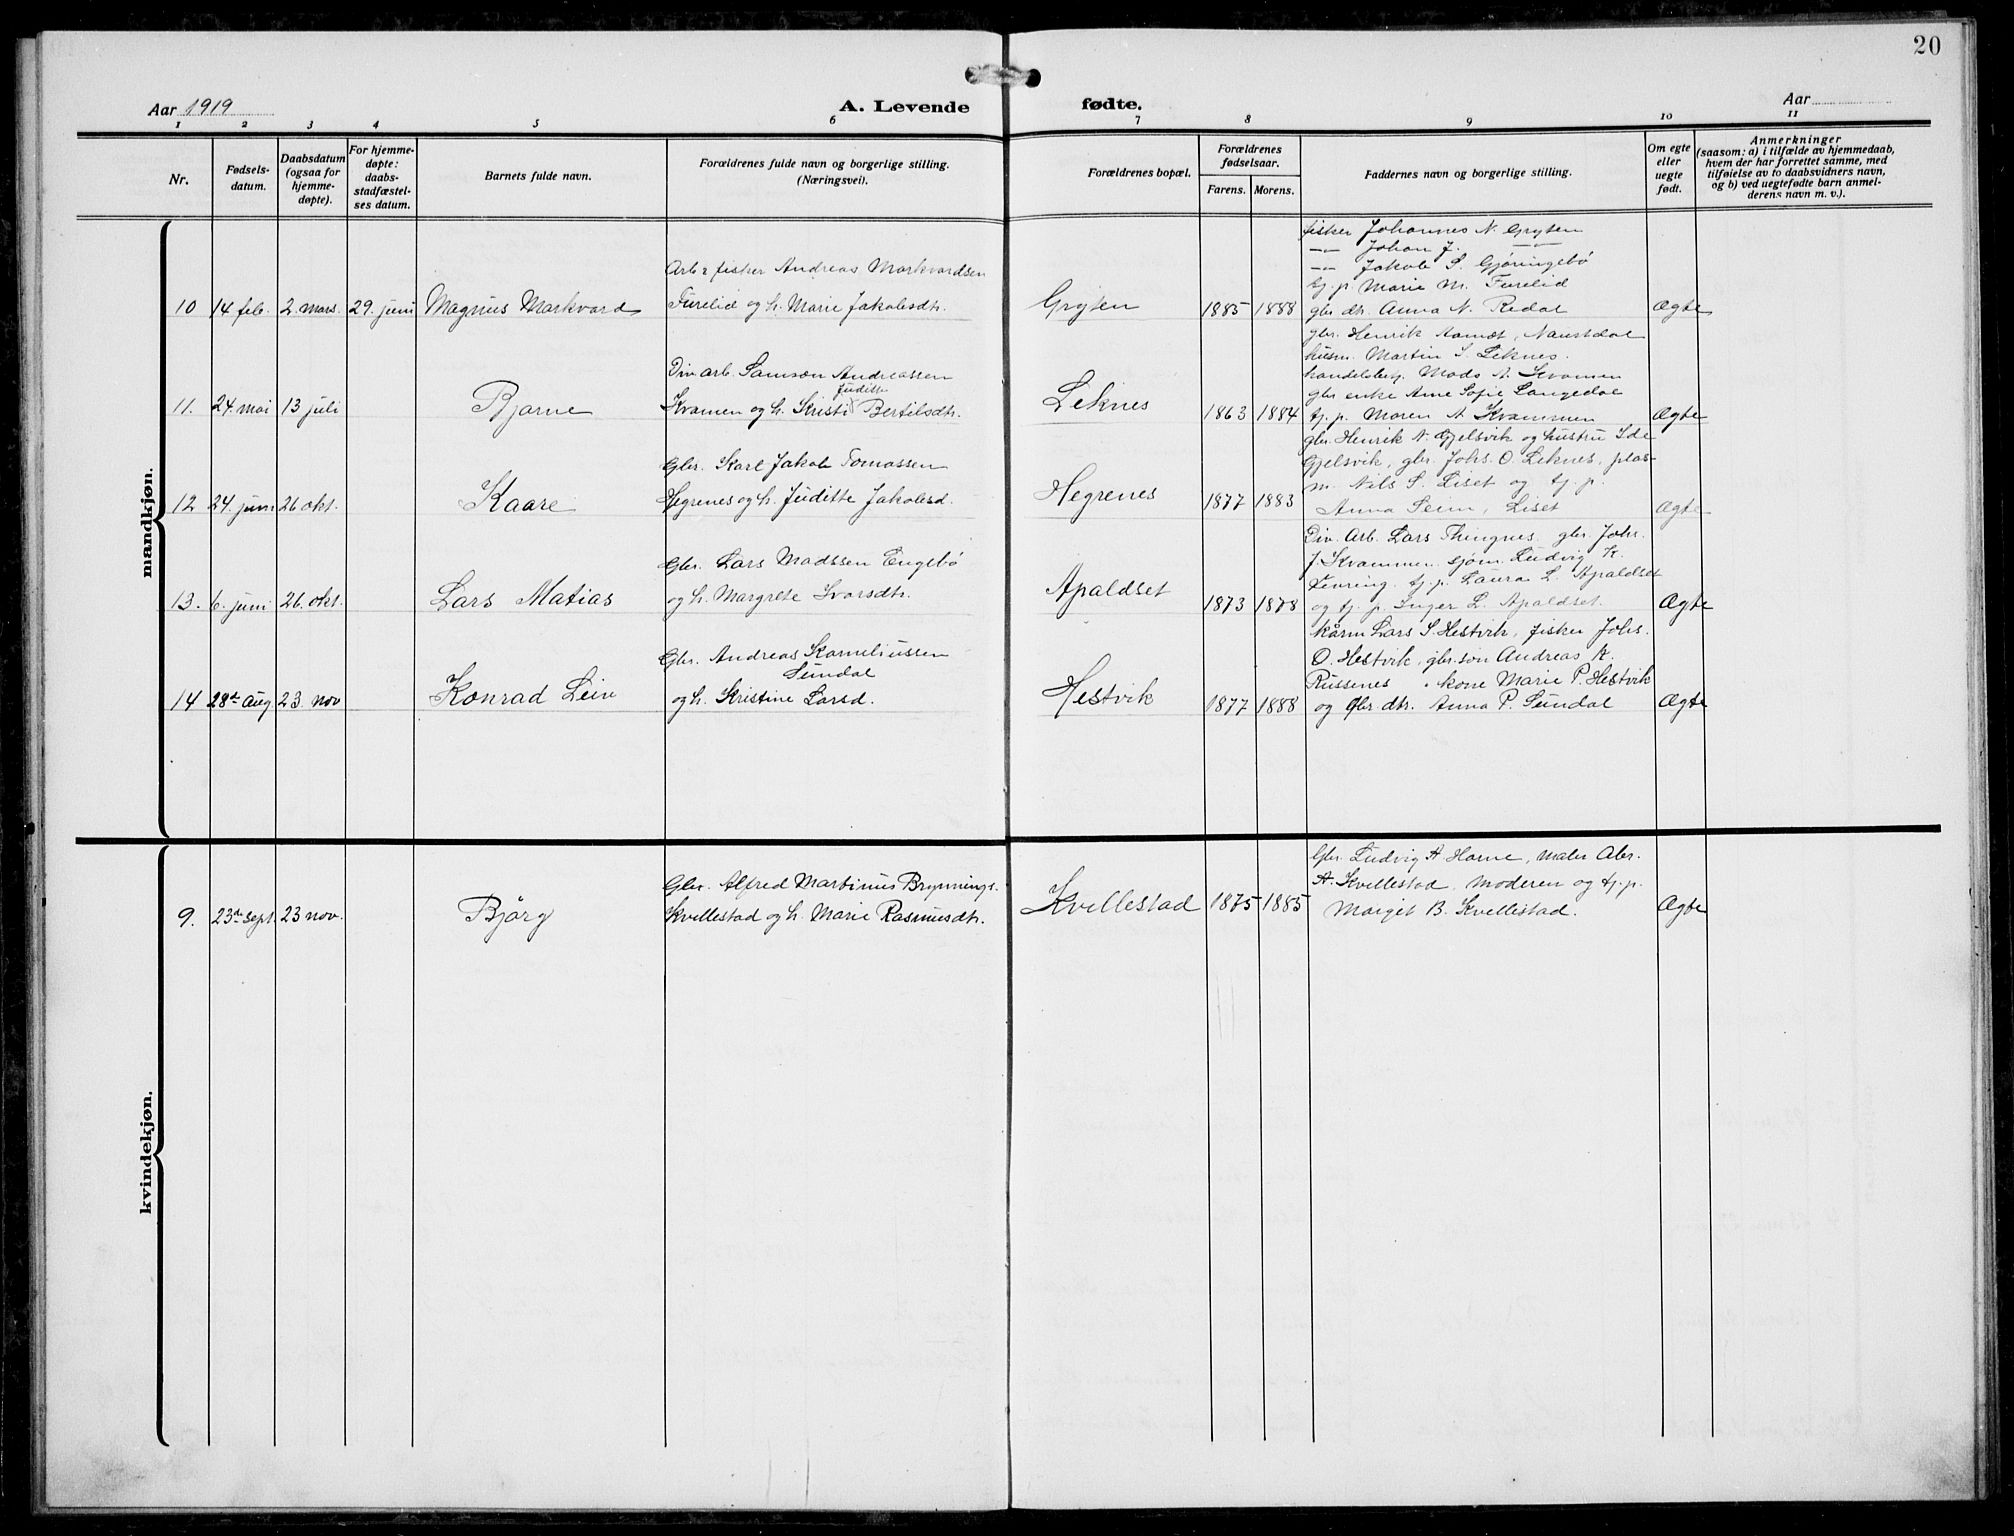 20
Aar 1919
A. Levende fødte.
Aar
1 2 3 4 5 6 7 8 9 10 11
Nr.
Fødsels-
datum.
Daabsdatum
(ogsaa for
hjemme-
døpte).
For hjemme-
døpte:
daabs-
stadfæstel-
ses datum.
Barnets fulde navn.
Forældrenes fulde navn og borgerlige stilling.
(Næringsvei).
Forældrenes bopæl.
Forældrenes
fødselsaar.
Farens. Morens.
Faddernes navn og borgerlige stilling.
Om egte
eller
uegte
født.
Anmerkninger
(saasom: a) i tilfælde av hjemmedaab,
hvem der har forrettet samme, med
tilføielse av to daabsvidners navn,
og b) ved uegtefødte barn anmel-
derens navn m. v.).
mandkjøn.
10 14 feb. 2. mars. 29. juni Magnus Markvard
Arb. & fisker Andreas Markvardsen
Furelid og h. Marie Jakobsdtr.
Gryten
1885 1888
fisker Johannes N. Gryten
—"— Johan J. —"—
—"— Jakob S. Gjøringebø
tj. p. Marie M. Furelid
gbr dtr. Anna N. Redal
Ægte
11. 24. mai 13 juli Bjarne
Div. arb. Samson Andreassen
Juditte
Kvamen og h. Kristi Bertilsdtr.
Leknes
1863 1884
gbr. Henrik Aamot, Naustdal
husm. Martin S. Leknes.
handelsbetj. Mads A. Kvamen
gbr enke Ane Sofie Langedal
tj. p. Maren A. Kvammen
Ægte
12 24. juni 26 okt. Kaare
Gbr. Karl Jakob Tomassen
Hegrenes og h. Juditte Jakobsd.
Hegrenes
1877 1883
gbr. Henrik N. Gjelsvik og hustru Ide
Gjelsvik, gbr. Johs. O. Leknes, plas-
m. Nils S. Liset og tj. p.
Anna Senn, Liset
Ægte
13. 6. juni 26. okt. Lars Matias
Gbr. Lars Madssen Engebø
og h. Margrete Ivarsdtr.
Apaldset
1873 1878
Div. Arb. Lars Thingnes, gbr Johs.
J. Kvammen, sjøm. Ludvig K.
Levring, tj. p. Laura L. Apaldset
og tj. p. Inger L. Apaldset.
Ægte
14 28de Aug 23. nov Konrad Leiv
Gbr. Andreas Korneliussen
Sundal
og h. Kristine Larsd.
Hestvik
1877 1888
kårm Lars S. Hestvik, fisker Johs.
O. Hestvik, gbr. søn Andreas K.
Russenes, kone Marie P. Hestvik
og gbr dtr. Anna P. Sundal
Ægte
kvindekjøn.
9. 23de sept. 23 nov. Bjørg
Gbr. Alfred Martinus Brynnings.
Kvellestad og h. Marie Rasmusdtr.
Kvellestad
1875 1885
Gbr. Ludvig A. Horne, maler Abr.
A. Kvellestad, moderen og tj. p.
Margit B. Kvellestad.
Ægte